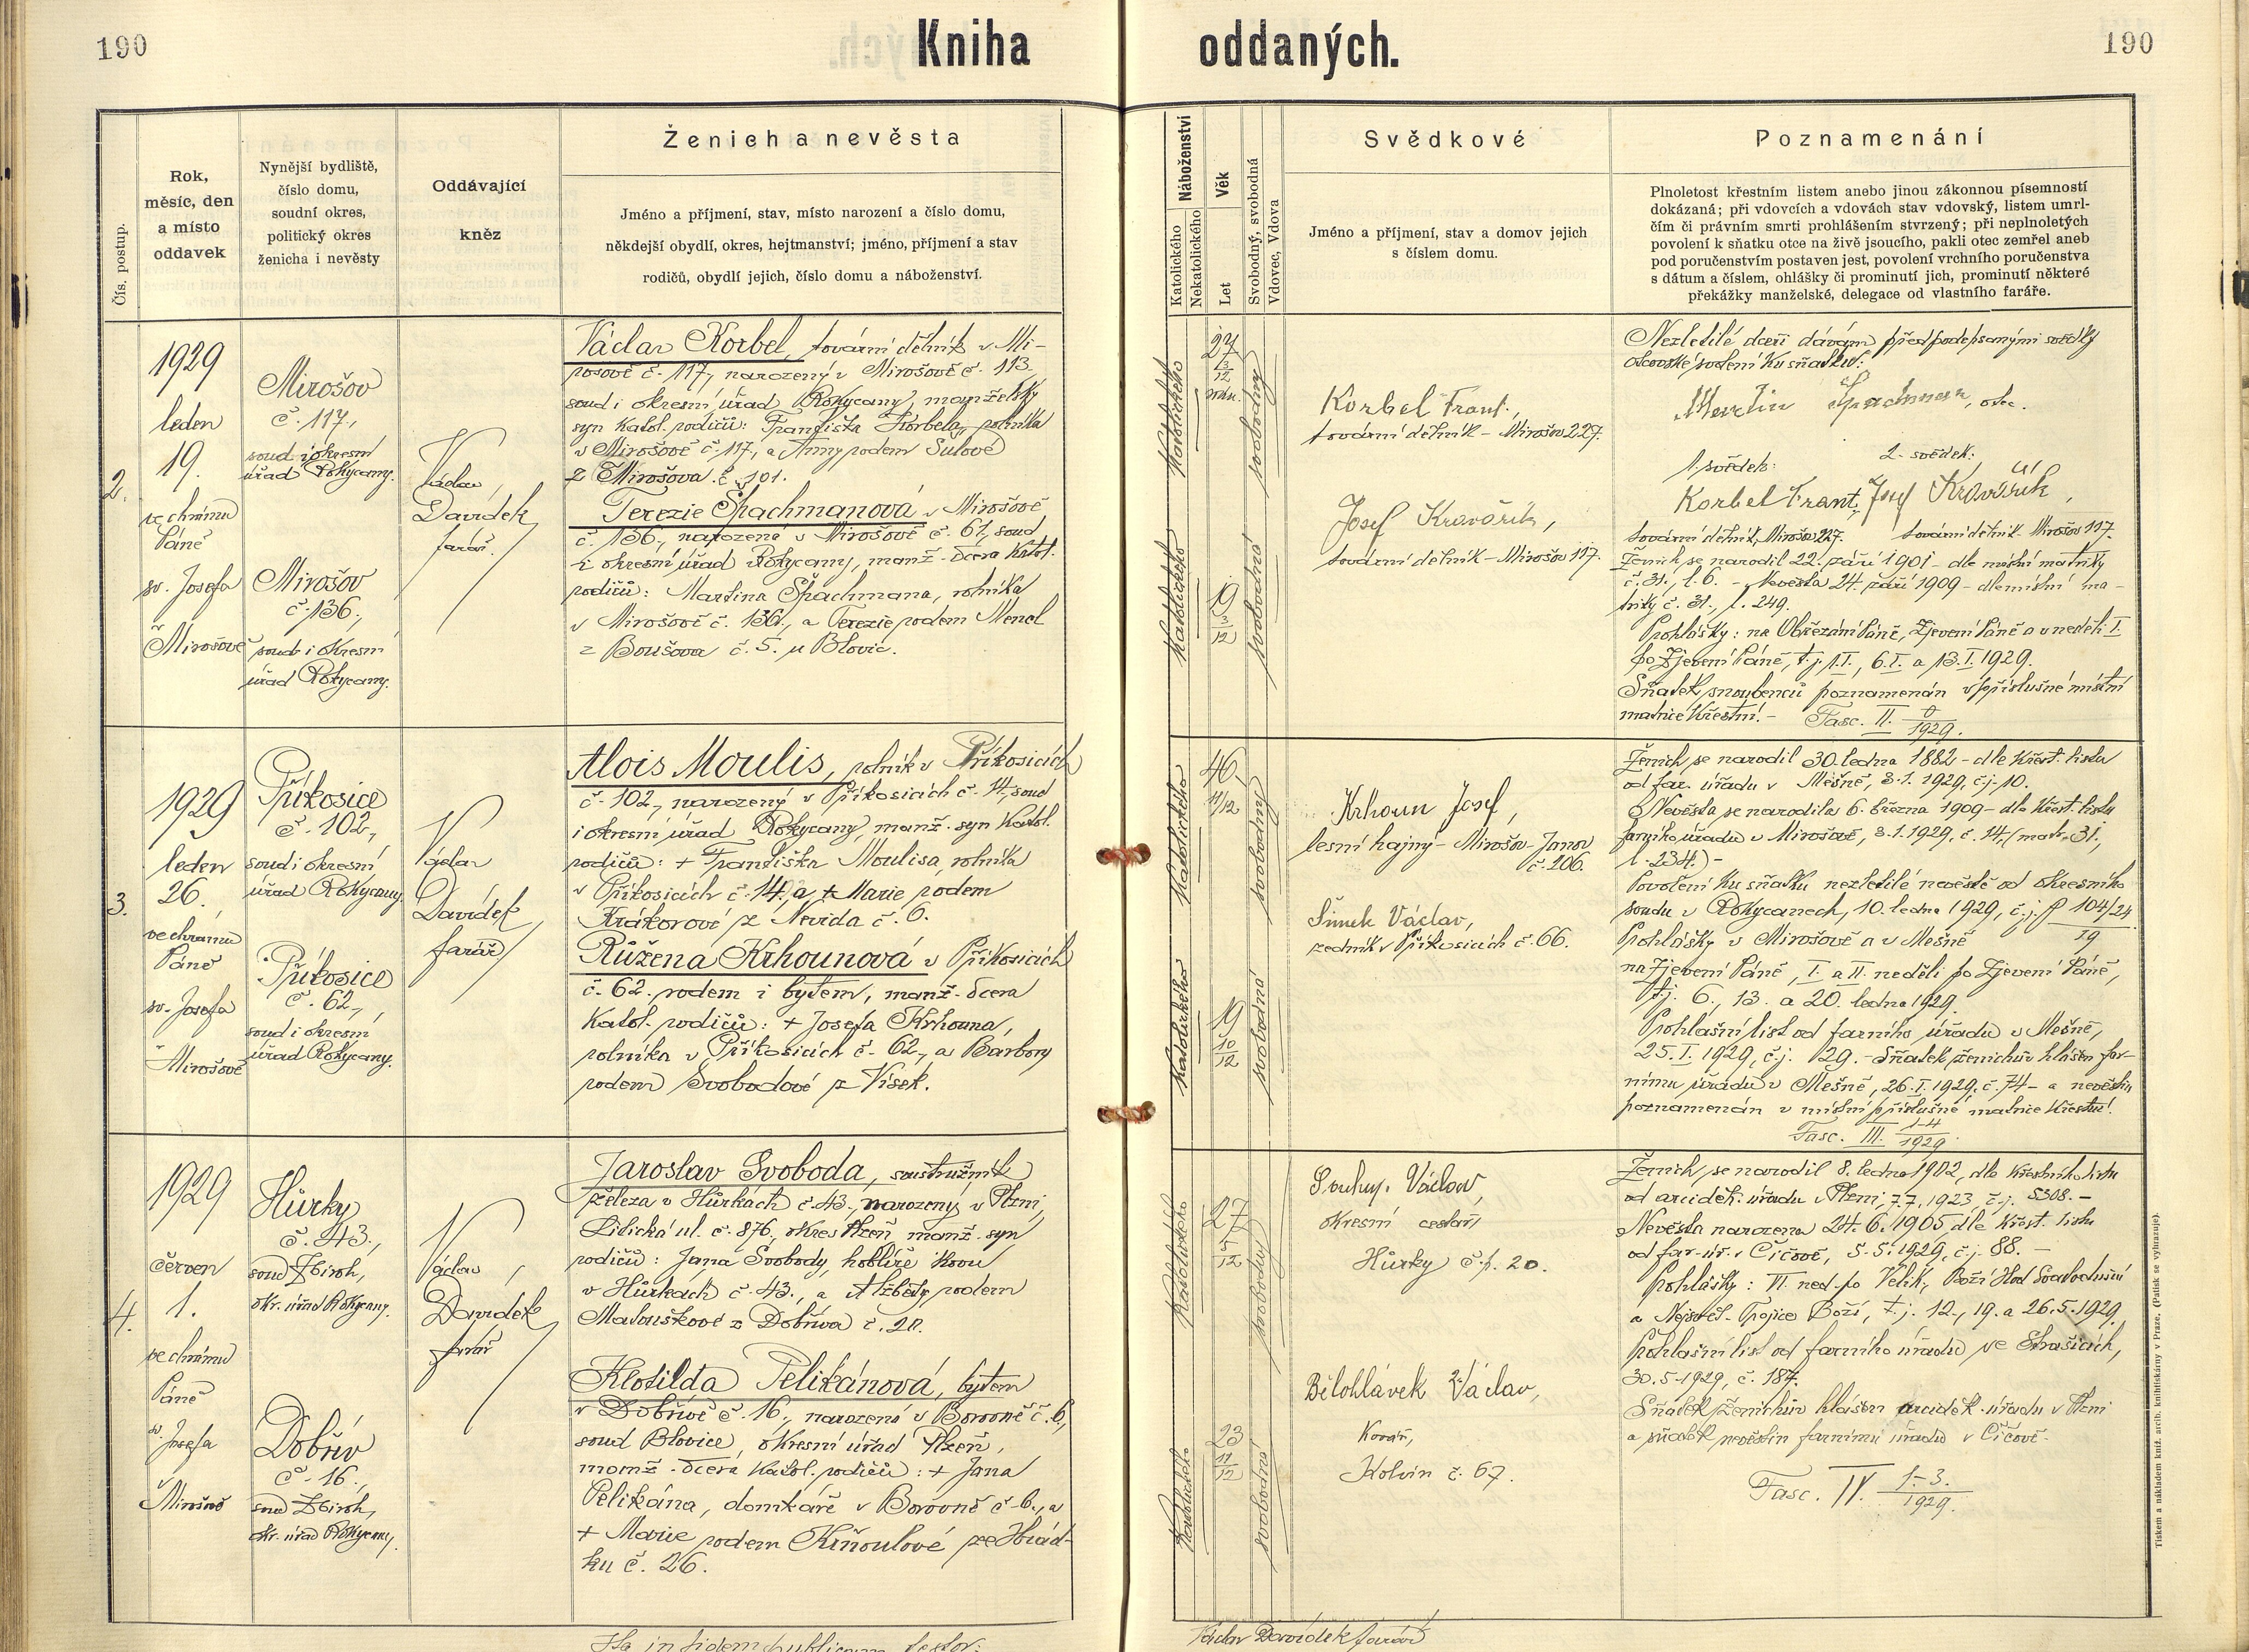 190
Kniha
oddaných.
190
Čís. postup.
Rok,
měsíc, den
a místo
oddavek
Nynější bydliště,
číslo domu,
soudní okres,
politický okres
ženicha i nevěsty
Oddávající
kněz
Ženich a nevěsta
Jméno a příjmení, stav, místo narození a číslo domu,
někdejší obydlí, okres, hejtmanství; jméno, příjmení a stav
rodičů, obydlí jejich, číslo domu a náboženství.
Náboženství
Katolického
Nekatolického
Věk
Let
Svobodný, svobodná
Vdovec, Vdova
Svědkové
Jméno a příjmení, stav a domov jejich
s číslem domu.
Poznamenání
Plnoletost křestním listem anebo jinou zákonnou písemností
dokázaná; při vdovcích a vdovách stav vdovský, listem umrl-
čím či právním smrti prohlášením stvrzený; při neplnoletých
povolení k sňatku otce na živě jsoucího, pakli otec zemřel aneb
pod poručenstvím postaven jest, povolení vrchního poručenstva
s dátum a číslem, ohlášky či prominutí jich, prominutí některé
překážky manželské, delegace od vlastního faráře.
2.
1929
leden
19.
ve chrámu
Páně
sv. Josefa
v
Mirošově
Mirošov
č. 117.,
soud i okresní
úřad Rokycany.
Mirošov
č. 136.,
soud i okresní
úřad Rokycany.
Václav
Davídek,
farář.
Václav Korbel, tovární dělník v Mi-
rošově č. 117., narozený v Mirošově č. 113.
soud i okresní úřad Rokycany, manželský
syn katol. rodičů: Františka Korbela, rolníka
v Mirošově č. 117., a Anny rodem Šulové
z Mirošova č. 101.
Terezie Špachmanová v Mirošově
č. 136., narozená v Mirošově č. 61., soud
i okresní úřad Rokycany, manž. dcera katol.
rodičů: Martina Špachmana, rolníka
v Mirošově č. 136., a Terezie rodem Mencl
z Boušova č. 5. u Blovic.
Katolického
27
3/12
svobodný
Katolického
19
3/12
svobodná
Korbel Frant.,
tovární dělník – Mirošov 227.
Josef Kravařík,
tovární dělník – Mirošov 117.
Nezletilé dceři dávám před podepsanými svědky
otcovské svolení ku sňatku:
Martin Špachman, otec.
1. svědek: 2. svědek:
Korbel Frant., Josef Kravařík,
tovární dělník, Mirošov 227. tovární dělník – Mirošov 117.
Ženich se narodil 22. září 1901 – dle místní matriky
č. 31., l. 6. – Nevěsta 24. září 1909 – dle místní ma-
triky č. 31., l. 249.
Prohlášky: na Obřezání Páně, Zjevení Páně a v neděli I.
po Zjevení Páně, t. j. 1. I., 6. I. a 13. I. 1929.
Sňatek snoubenců poznamenán v příslušné místní
matrice křestní. – Fasc. II. /1929.
3.
1929
leden
26.
ve chrámu
Páně
sv. Josefa
v
Mirošově
Příkosice
č. 102.,
soud i okresní
úřad Rokycany.
Příkosice
č. 62.,
soud i okresní
úřad Rokycany.
Václav
Davídek,
farář
Alois Moulis, rolník v Příkosicích
č. 102., narozený v Příkosicích č. 14., soud
i okresní úřad Rokycany, manž. syn katol.
rodičů: + Františka Moulisa, rolníka
v Příkosicích č. 14., a + Marie rodem
Krákorové z Nevida č. 6.
Růžena Krhounová v Příkosicích
č. 62. rodem i bytem, manž. dcera
katol. rodičů: + Josefa Krhouna,
rolníka v Příkosicích č. 62., a Barbory
rodem Svobodové z Vísek.
Katolického
46
11/12
svobodný
Katolického
19
10/12
svobodná
Krhoun Josef,
lesní hajný – Mirošov – Janov
č. 106.
Šimek Václav,
zedník v Příkosicích č. 66.
Ženich se narodil 30. ledna 1882 – dle křest. listu
od far. úřadu v Mešně, 3. 1. 1929, č. j. 10.
Nevěsta se narodila 6. března 1909 – dle křest. listu
farního úřadu v Mirošově, 3. 1. 1929, č. 14, (matr. 31.
l. 234.) –
Povolení ku sňatku nezletilé nevěstě od okresního
soudu v Rokycanech, 10. ledna 1929, č. j. P 104/24
19
Prohlášky v Mirošově a v Mešně
na Zjevení Páně, I. a II. neděli po Zjevení Páně,
t. j. 6., 13. a 20. ledna 1929.
Prohlašní list od farního úřadu v Mešně,
25. I. 1929, č. j. 129. – Sňatek ženichův hlášen far-
nímu úřadu v Mešně, 26. I. 1929, č. 74 – a nevěstin
poznamenán v místní příslušné matrice křestní.
Fasc. III. 1-4/1929
4.
1929
červen
1.
ve chrámu
Páně
sv. Josefa
v
Mirošově
Hůrky
č. 43.,
soud Zbiroh,
okr. úřad Rokycany.
Dobřív
č. 16.,
soud Zbiroh,
okr. úřad Rokycany.
Václav
Davídek,
farář
Jaroslav Svoboda, soustružník
železa v Hůrkách č. 43., narozený v Plzni,
Lidická ul. č. 876., okres Plzeň, manž. syn
rodičů: Jana Svobody, hoblíře kovu
v Hůrkách č. 43., a Alžběty rodem
Matouškové z Dobříva č. 20.
Klotilda Pelikánová, bytem
v Dobřívě č. 16., narozená v Borovně č. 6.,
soud Blovice, okresní úřad Plzeň,
manž. dcera katol. rodičů: + Jana
Pelikána, domkáře v Borovně č. 6., a
+ Marie rodem Krňoulové ze Hrád-
ku č. 26.
Katolického
27
5/12
svobodný
Katolického
23
11/12
svobodná
Souhrj. Václav,
okresní cestář,
Hůrky č. p. 20.
Bělohlávek Václav,
Kovář,
Holvín č. 67.
Ženich se narodil 8. ledna 1902, dle křestního listu
od arciděk. úřadu v Plzni, 7. 7. 1923, č. j. 5308. –
Nevěsta narozena 24. 6. 1905 dle křest. listu
od far. úř. v Čičově, 5. 5. 1929, č. j. 88. –
Prohlášky: VI. ned. po Velik., Boží Hod Svatodušní
a Nejsvět. Trojice Boží, t. j. 12., 19. a 26. 5. 1929.
Prohlašní list od farního úřadu ve Strašicích,
30. 5. 1929, č. 187.
Sňatek ženichův hlášen arciděk. úřadu v Plzni
a sňatek nevěstin farnímu úřadu v Čičově.
Fasc. IV. 1-3./1929.
Tiskem a nákladem kníž. arcib. knihtiskárny v Praze. (Patisk se vyhrazuje).
Ita in fidem publicam testor:
Václav Davídek farář